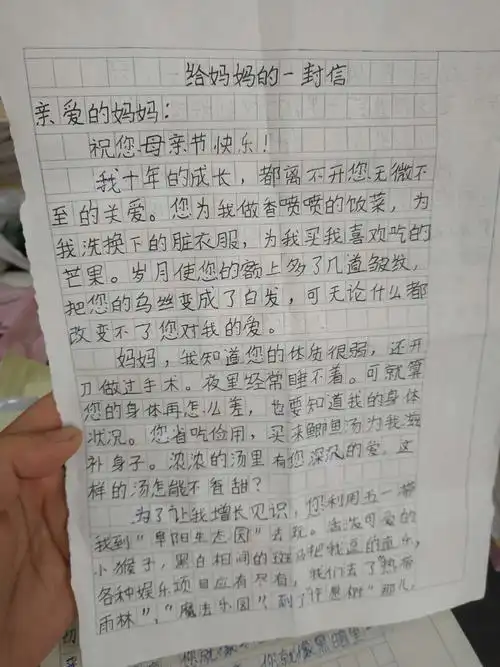 给妈妈的一封信
亲爱的妈妈：
祝您母亲节快乐！
我十年的成长，都离不开您无微不
至的关爱。您为我做香喷喷的饭菜，为
我洗换下的脏衣服，为我买我喜欢吃的
芒果。岁月使您的额上多了几道皱纹，
把您的乌丝变成了白发，可无论什么都
改变不了您对我的爱。
妈妈，我知道您的体质很弱，还开
刀做过手术。夜里经常睡不着。可就算
您的身体再怎么差，也要知道我的身体
状况。您省吃俭用，买来鲫鱼汤为我滋
补身子。浓浓的汤里有您深沉的爱，这
样的汤怎能不香甜？
为了让我增长见识，您利用五一带
我到“阜阳生态园”去玩。活泼可爱的
小猴子，黑白相间的斑马把我逗的直乐，
各种娱乐项目应有尽有，我们去了热带
雨林”，“魔法乐园”，到了许愿树”那儿，